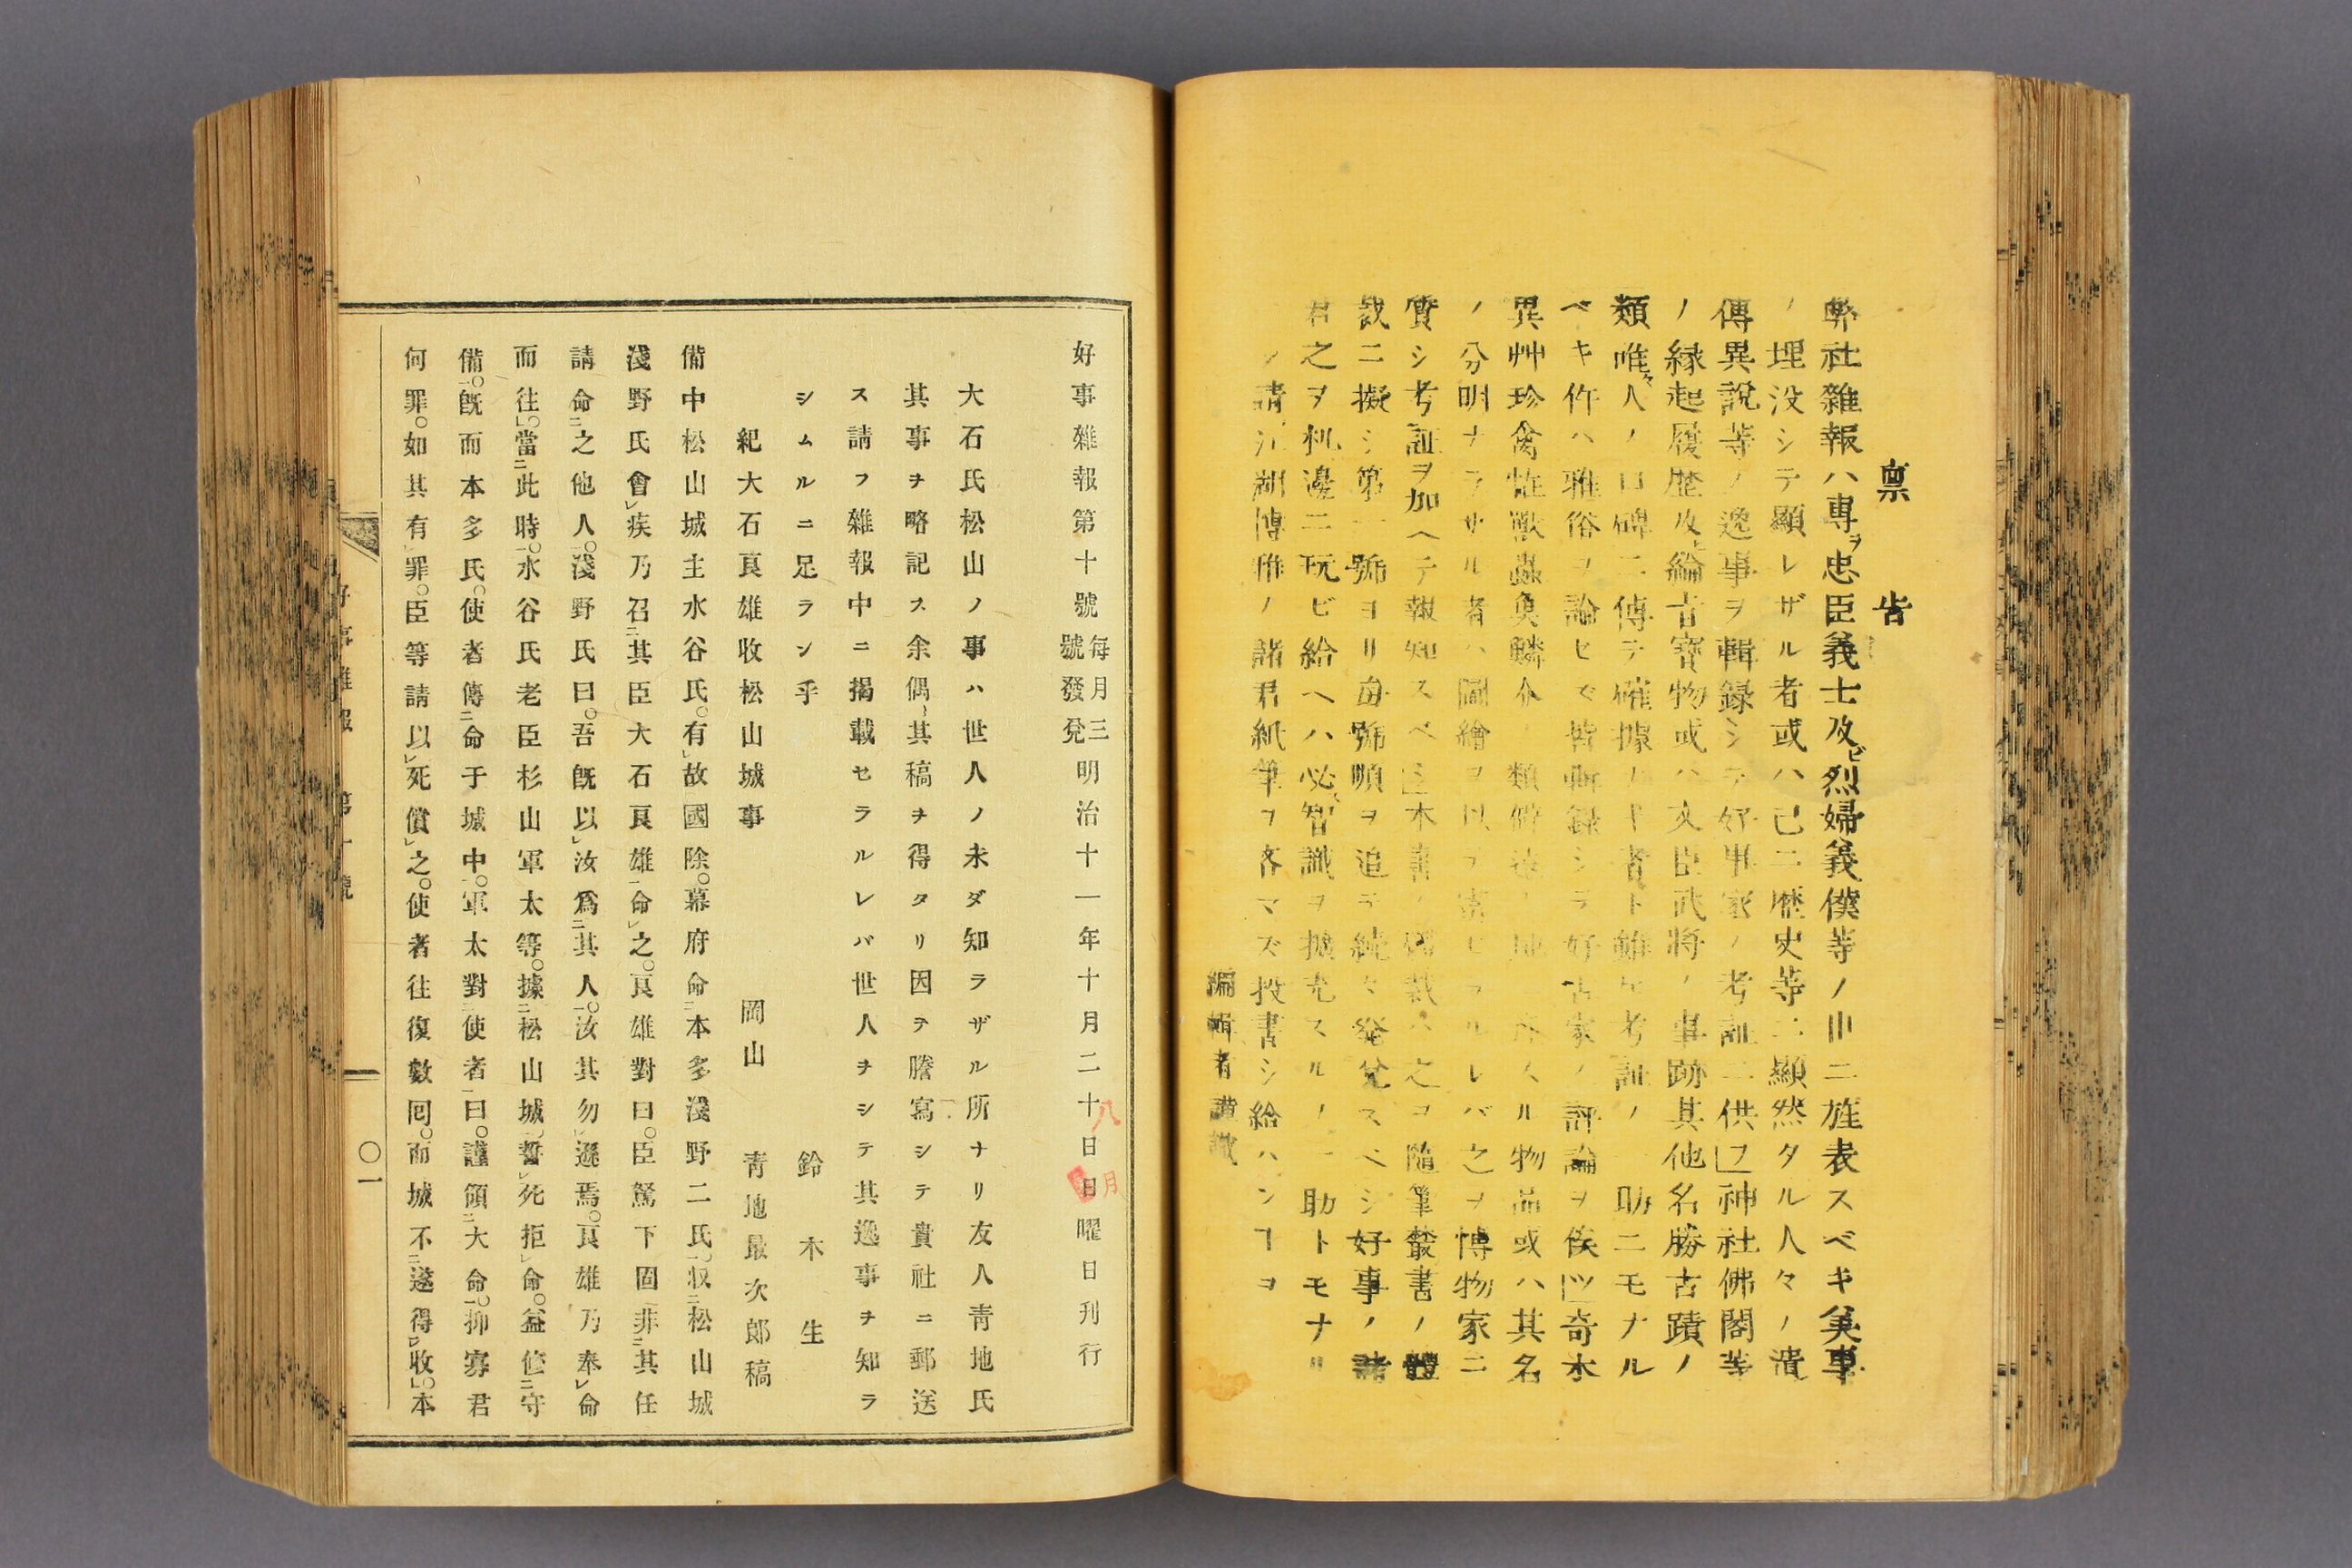 稟告
弊社雜報ハ專ヲ忠臣義士及ビ烈婦義僕等ノ中ニ旌表スベキ美事
ノ埋没シテ顯レザル者或ハ已ニ歴史等ニ顯然タル人々ノ潰
傳異說等ノ逸事ヲ輯録シテ好事家ノ考証ニ供ヲ神社佛閣等
ノ縁起履歴及ヒ綸旨寶物或ハ文臣武將ノ事跡其他名勝古蹟ノ
類唯々人ノ口碑ニ傳テ確據ナキ者ト雖ヒ考証ノ一助ニモナル
ベキ件ハ雅俗ヲ論セズ皆輯録シテ好古家ノ評論ヲ俟ツ奇木
異艸珍禽恠獸蟲魚鱗介ノ類僻遠ノ地ニ産スル物品或ハ其名
ノ分明ナラザル者ハ圖繪ヲ以テ寄セラルレバ之ヲ博物家ニ
質シ考証ヲ加ヘテ報知スベシ本書ノ體裁ハ之ヲ隨筆叢書ノ體
裁ニ擬シ第一號ヨリ毎號順ヲ追テ続々発兌スベシ好事ノ諸
君之ヲ机邊ニ玩ビ給ヘハ必ヽ智識ヲ擴充スルノ一助トモナリ
ン請江湖博雅ノ諸君紙筆ヲ吝マズ投書シ給ハンコヲ
編輯者謹識
好事雜報第十號 每月三號發兌 明治十一年十月二十八日月日曜日刊行
大石氏松山ノ事ハ世人ノ未ダ知ラザル所ナリ友人靑地氏
其事ヲ略記ス余偶ミ其稿ヲ得タリ因テ謄寫シテ貴社ニ郵送
ス請フ雜報中ニ揭載セラルレバ世人ヲシテ其逸事ヲ知ラ
シムルニ足ラン乎 鈴木生
紀大石良雄收松山城事 岡山 靑地最次郎稿
備中松山城主水谷氏。有レ故國除。幕府命二本多淺野二氏一。収二松山城一
淺野氏會レ疾乃召二其臣大石良雄一命レ之。良雄對曰。臣駑下固非二其任一
請命二之他人一。淺野氏曰。吾既以レ汝爲二其人一。汝其勿レ遜焉。良雄乃奉レ命
而往。當二此時一。水谷氏老臣杉山軍太等。據二松山城一。誓レ死拒レ命。益修二守
備一。既而本多氏。使者傳二命于城中一。軍太對二使者一曰。謹領二大命一。抑寡君
何罪。如其有レ罪。臣等請以レ死償レ之。使者往復數回。而城不二遂得一レ收。本
好事雜報 第十號
〇一